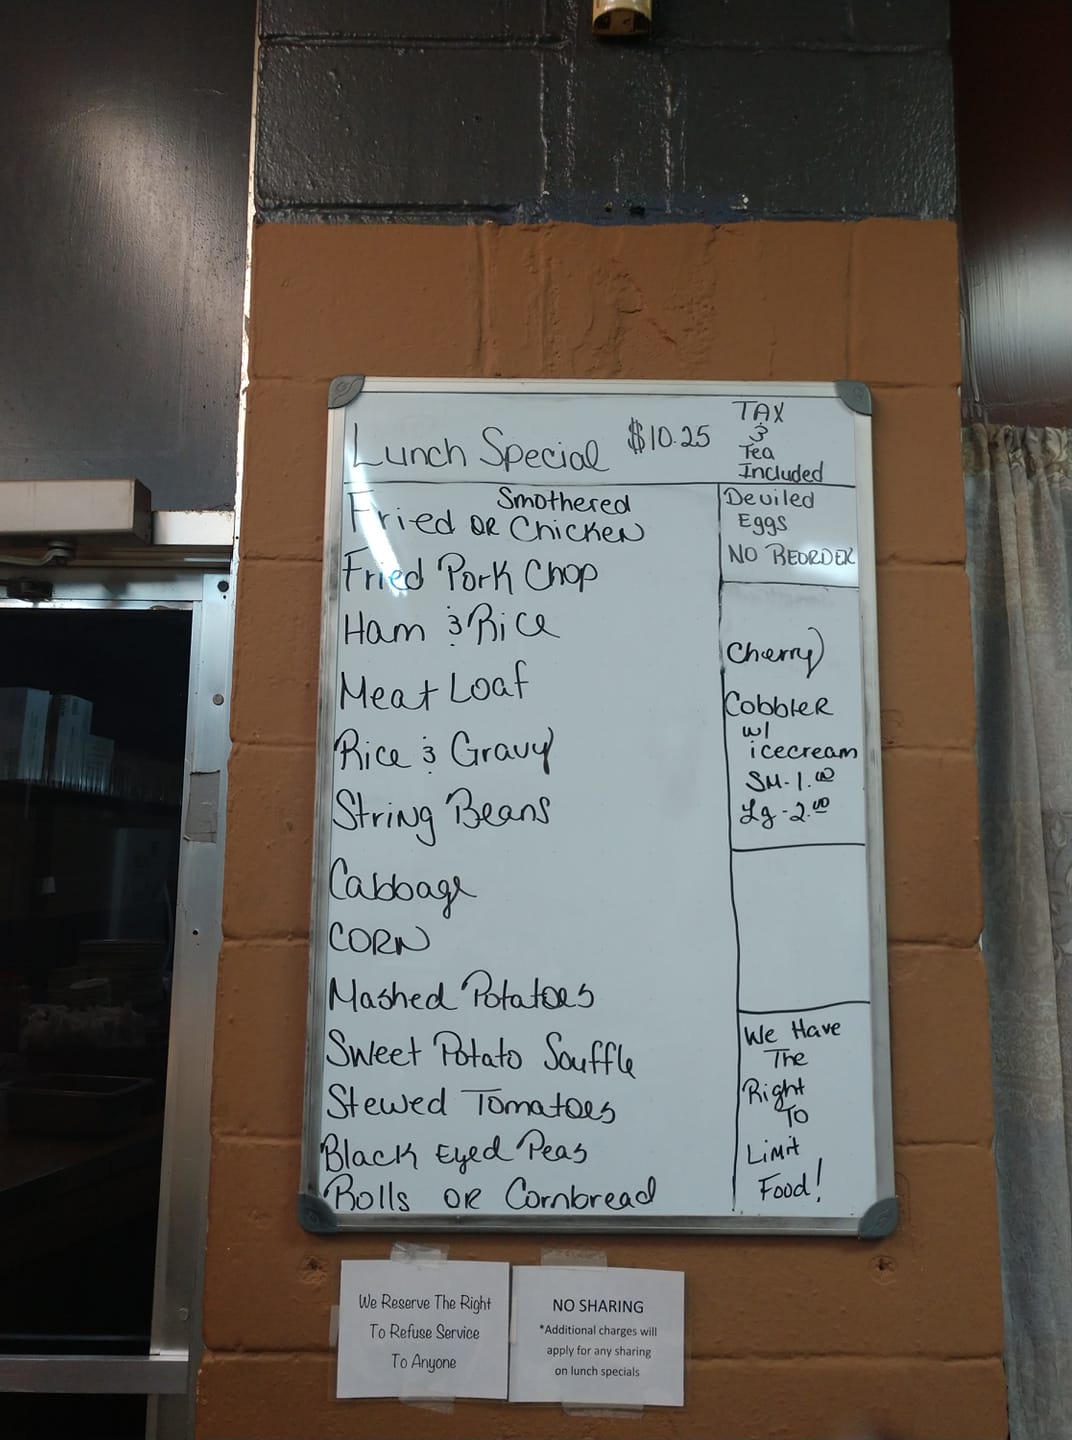 Lunch Special $10.25
TAX
&
Tea
Included
Smothered
Fried OR Chicken
Fried Pork Chop
Ham & Rice
Meat Loaf
Rice & Gravy
String Beans
Cabbage
CORN
Mashed Potatoes
Sweet Potato Souffle
Stewed Tomatoes
Black Eyed Peas
Rolls OR Cornbread
Deviled
Eggs
NO REORDER
Cherry
Cobbler
w/
icecream
SM-1.00
Lg-2.00
We Have
The
Right
To
Limit
Food!
We Reserve The Right
To Refuse Service
To Anyone
NO SHARING
*Additional charges will
apply for any sharing
on lunch specials